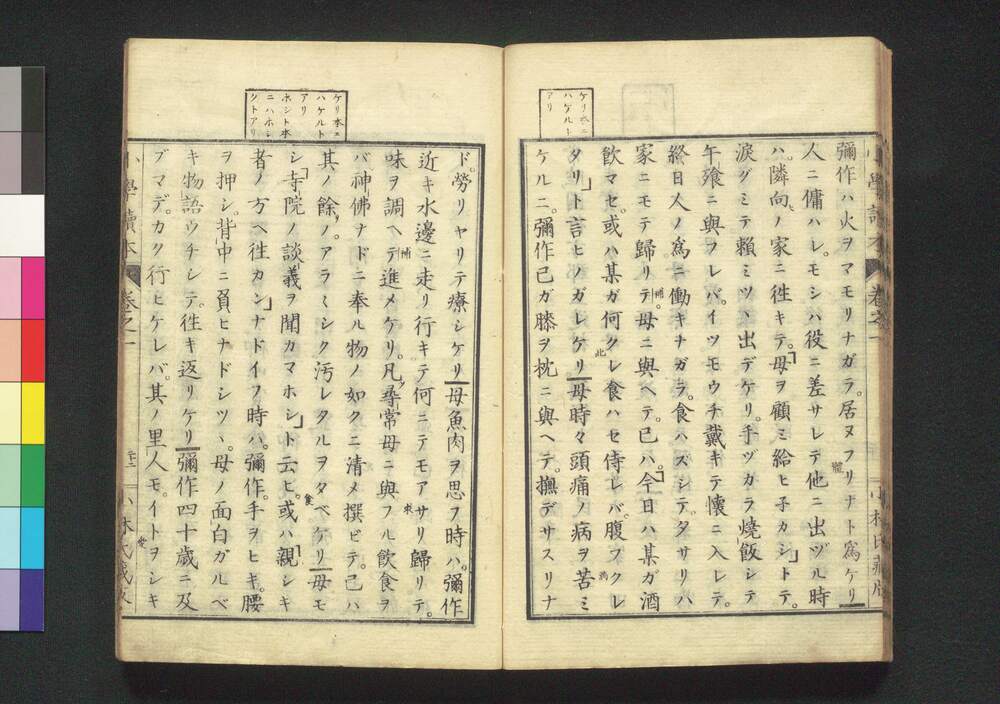 ケリ本ニ
ハケルト
アリ
彌作ハ火ヲマモリナガラ。居ヌフリナト爲ケリ
人ニ傭ハレ。モシハ役ニ差サレテ他ニ出ヅル時
ハ。隣向ノ家ニ徃キテ。「母ヲ顧ミ給ヒ子カシ」トテ。
淚グミテ賴ミツヽ出デケリ。手ヅカラ燒飯シテ
午飱ニ與フレバ。イツモウチ戴キテ懷ニ入レテ。
終日人ノ爲ニ働キナガラ。食ハズシテ。タサリハ
家ニモテ歸リテ。母ニ與ヘテ。已ハ。「今日ハ某ガ酒
飮マセ。或ハ某ガ何クレ食ハセ侍レバ。腹フクレ
タリ」ト言ヒノガレケリ 母時々頭痛ノ病ヲ苦ミ
ケルニ。彌作己ガ膝ヲ枕ニ與ヘテ。撫デサスリナ
ケリ本ニ
ハケルト
アリ
ホシト本
ニハホシ
クトアリ
ド。勞リヤリテ療シケリ 母魚肉ヲ思フ時ハ。彌作
近キ水邊ニ走リ行キテ何ニテモアサリ歸リテ。
味ヲ調ヘテ進メケリ。凡ソ尋常母ニ與フル飮食ヲ
バ神佛ナドニ奉ル物ノ如クニ淸メ撰ビテ。己ハ
其ノ餘ノアラミシク汚レタルヲタベケリ 母モ
シ「寺院ノ談義ヲ聞カマホシ」ト云ヒ。或ハ「親シキ
者ノ方ヘ徃カン」ナドイフ時ハ。彌作。手ヲヒキ。腰
ヲ押シ。背中ニ負ヒナドシツヽ。母ノ面白ガルベ
キ物語ウチシテ。徃キ返リケリ 彌作四十歲ニ及
ブマデ。カク行ヒケレバ。其ノ里人モ。イトヲシキ
小學讀本 卷之一